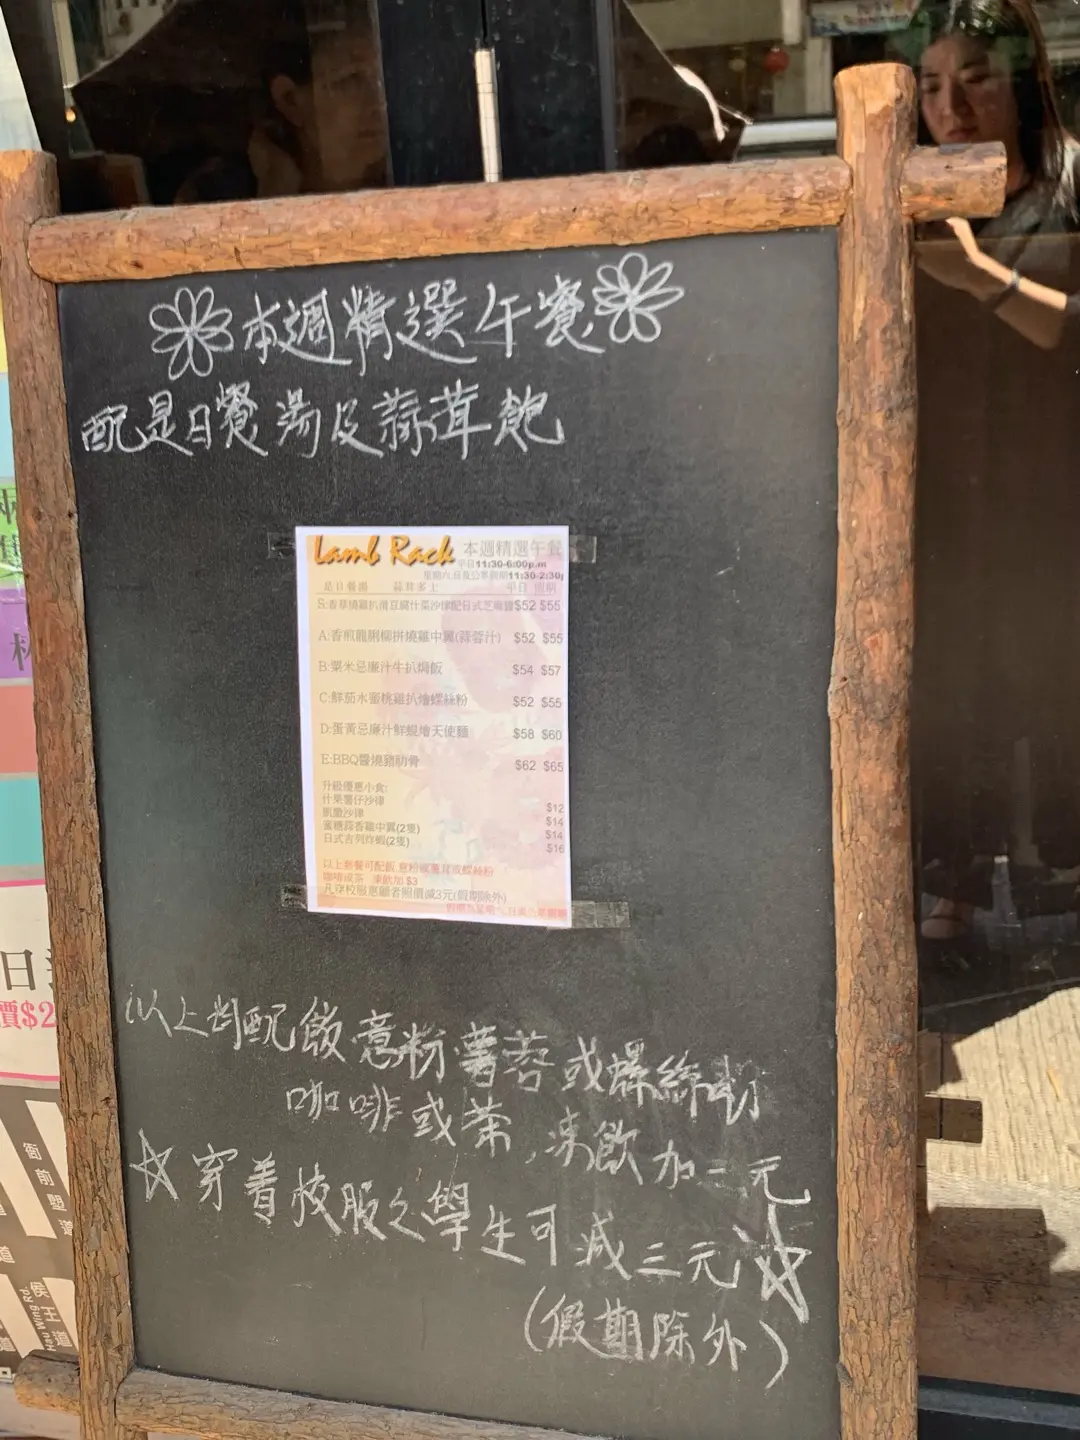 本週精選午餐
配是日餐湯及蒜茸飽
Lamb Rack 本週精選午餐
平日11:30-6:00p.m
星期六,日及公眾假期11:30-2:30p
是日餐湯 蒜茸多士 平日 假期
S:香草燒雞扒滑豆腐什菜沙律配日式芝麻醬$52 $55
A:香煎龍脷柳拼燒雞中翼(蒜蓉汁) $52 $55
B:粟米忌廉汁牛扒焗飯 $54 $57
C:鮮茄水蜜桃雞扒燴螺絲粉 $52 $55
D:蛋黃忌廉汁鮮蜆燴天使麵 $58 $60
E:BBQ醬燒豬肋骨 $62 $65
升級優惠小食:
什果薯仔沙律 $12
凱撒沙律 $14
蜜糖蒜香雞中翼(2隻) $14
日式吉列炸蝦(2隻) $16
以上套餐可配飯 意粉 薯茸或螺絲粉
咖啡或茶 凍飲加 $3
凡穿校服惠顧者照價減3元(假期除外)
以上鈞配飯意粉薯蓉或螺絲粉
咖啡或茶,凍飲加二元
穿着校服之學生可減三元
(假期除外)
日
價$2
衙前塱道
侯王道
Hau Wong Rd